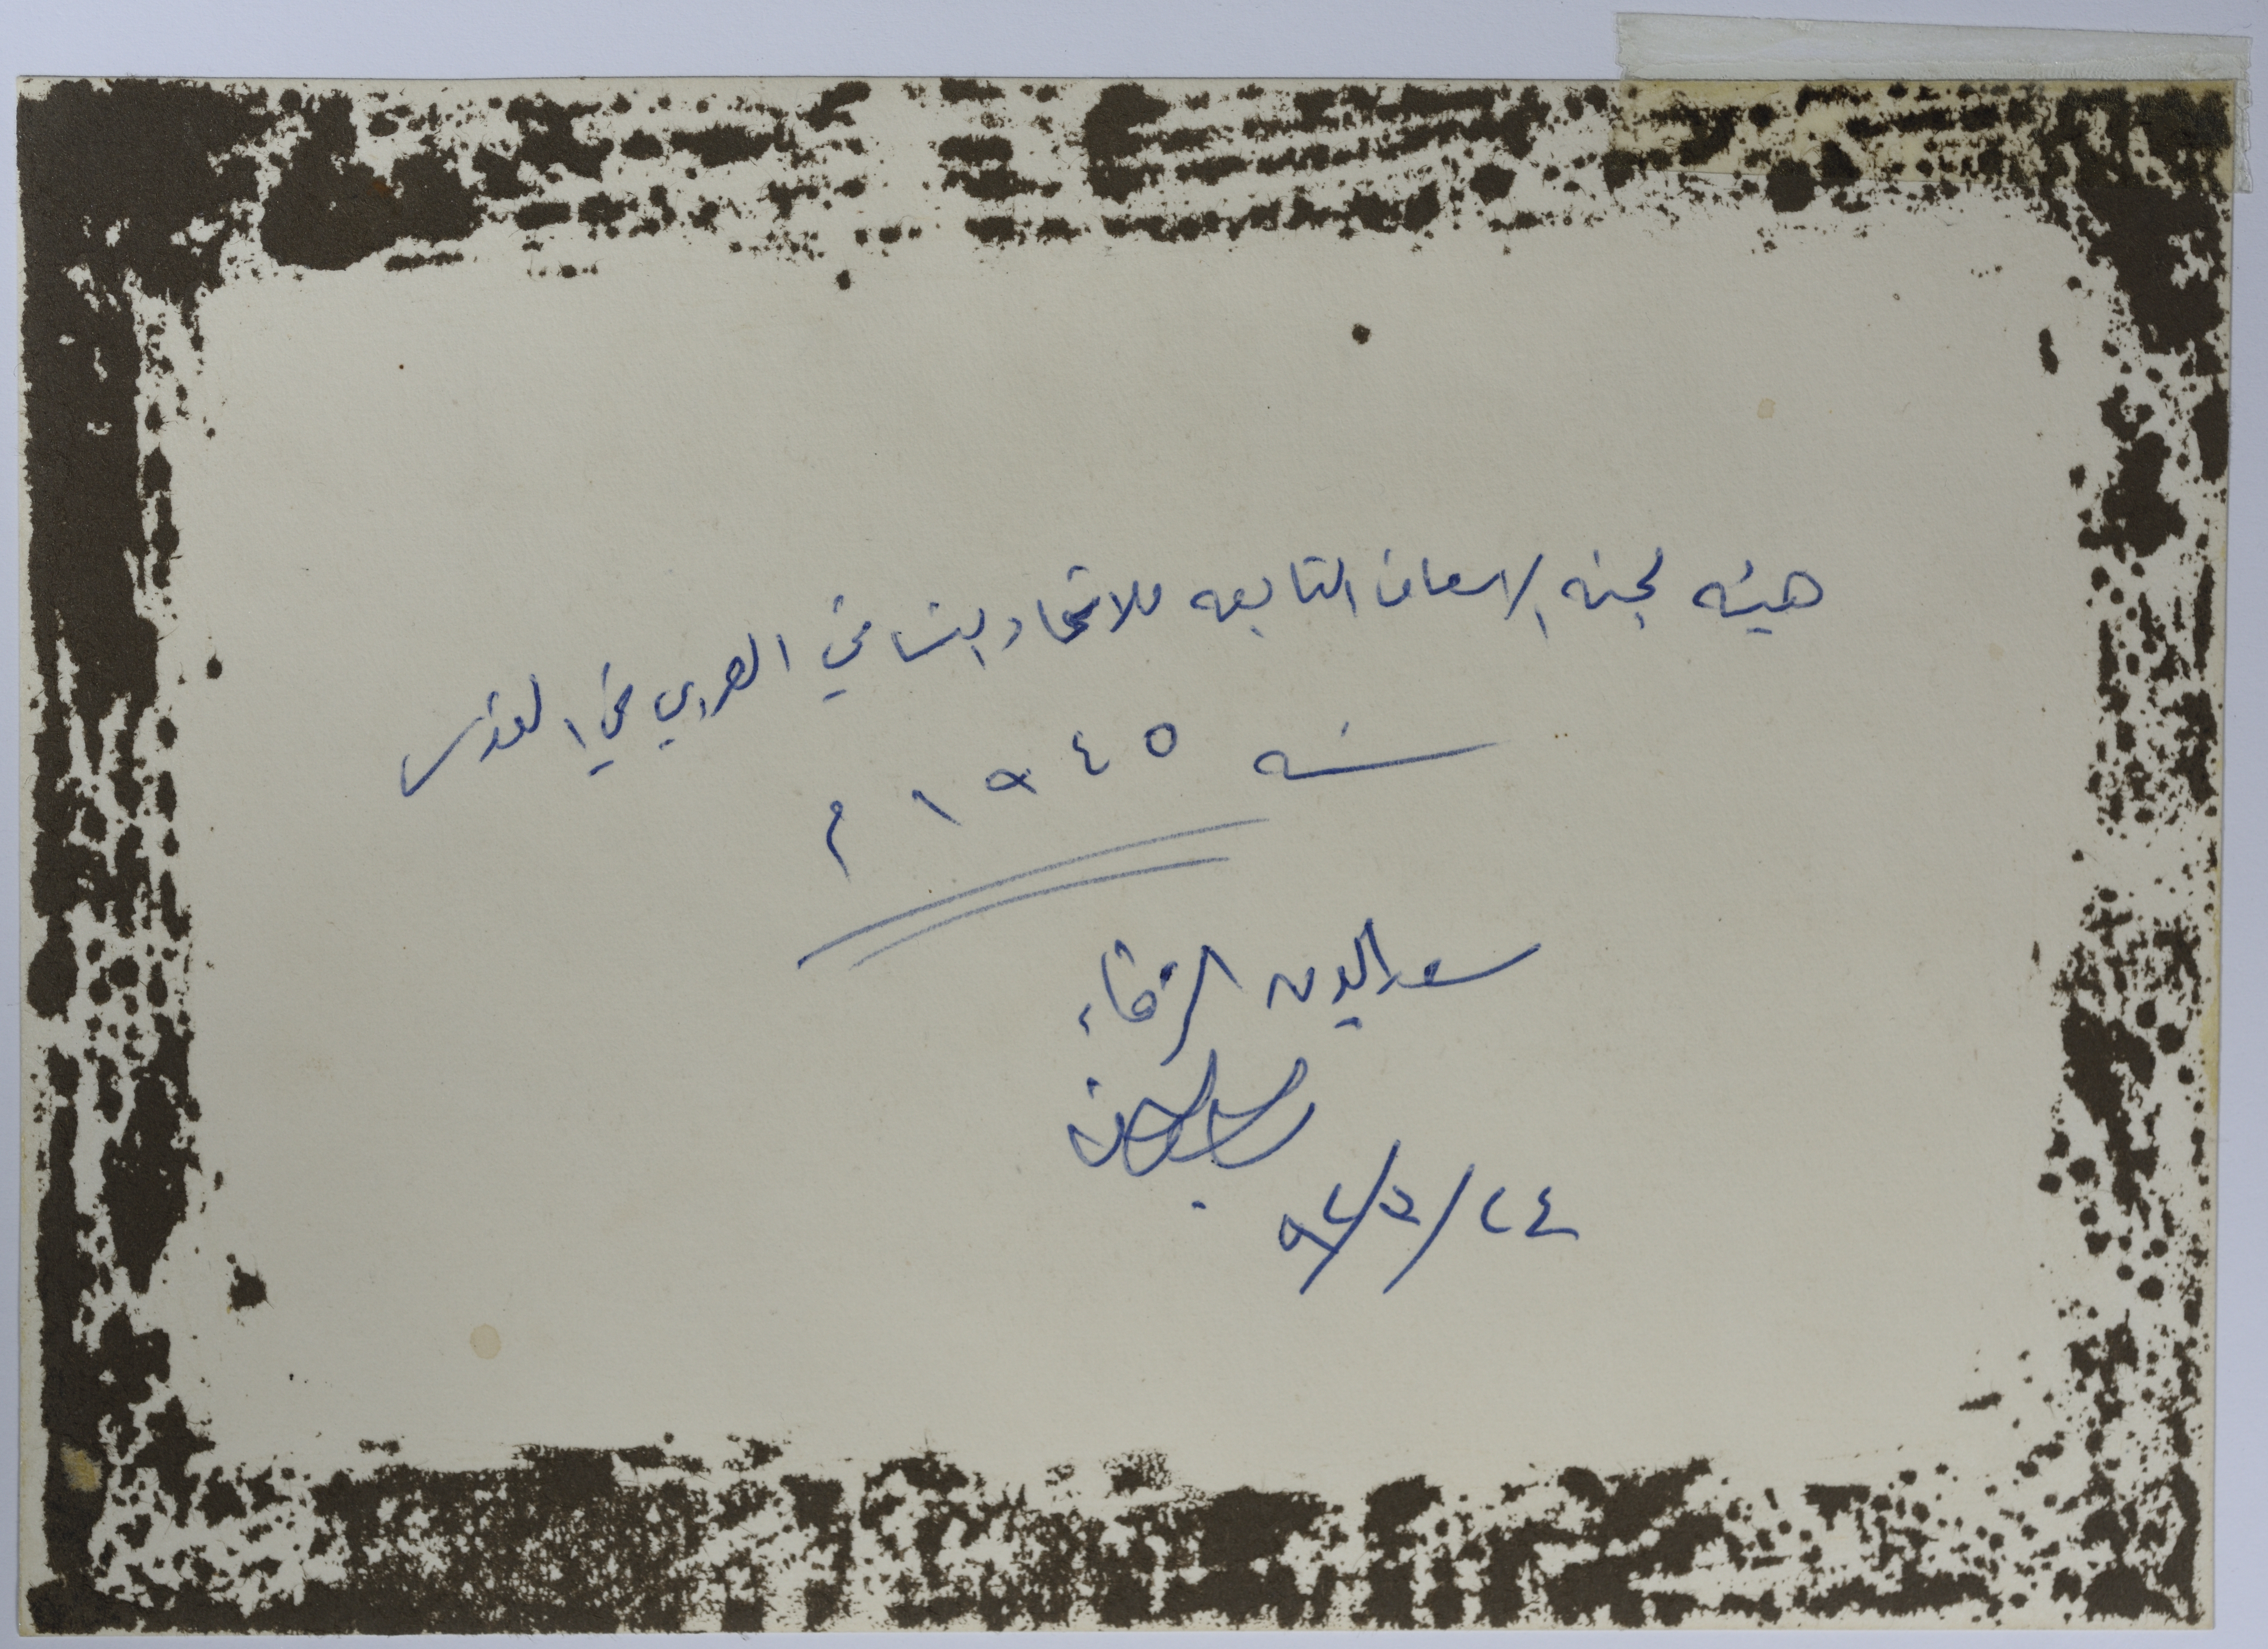 هيئه لجنه الاسعاف التابعه للاتحاد النسائي العربي في القدس
سنه ١٩٤٥ م
سعد الدين الزقاء
٢٤/٥/٩٢